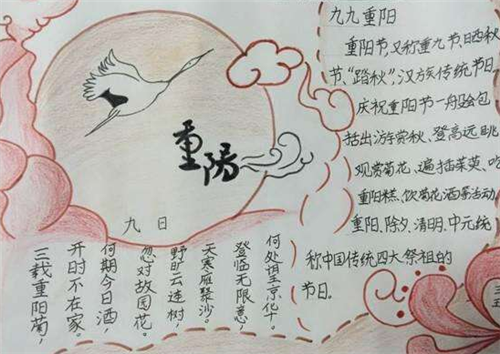 重阳
九日
三载重阳菊,
开时不在家。
何期今日酒,
忽对故园花。
野旷云连树,
天寒雁聚沙。
登临无限意,
何处望京华。
九九重阳
重阳节,又称重九节、晒秋
节、“踏秋”,汉族传统节日。
庆祝重阳节一般会包
括出游赏秋、登高远眺、
观赏菊花、遍插茱萸、吃
重阳糕、饮菊花酒等活动。
重阳、除夕、清明、中元统
称中国传统四大祭祖的
节日。